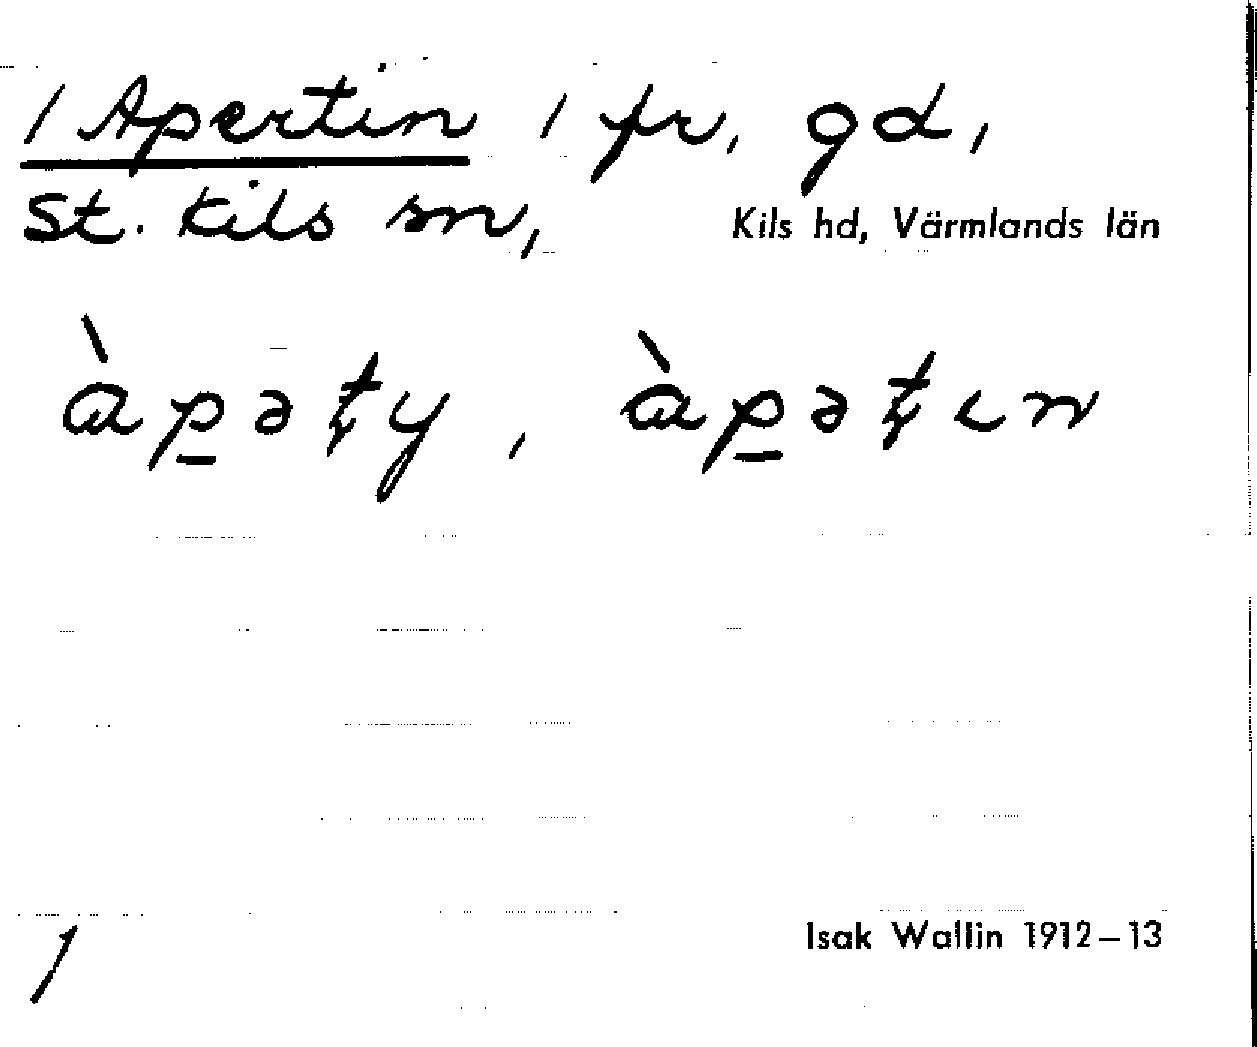 1 Apertin 1 fr, gd,
St. Kils sn, Kils hd, Värmlands län
àpəʈy, àpəʈın
1 Isak Wallin 1912–13